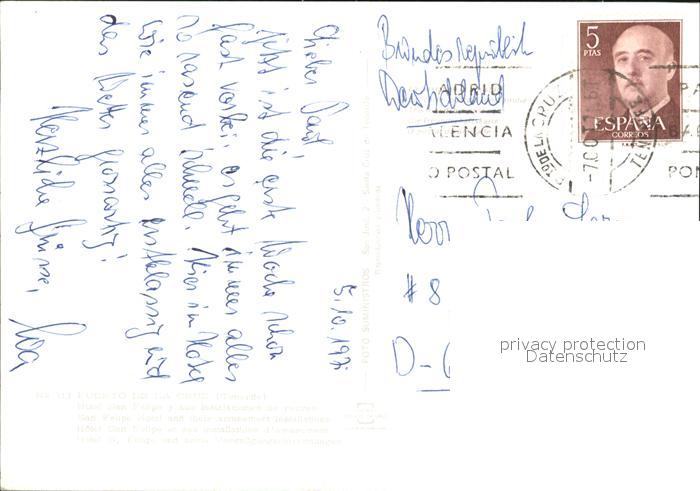 5.10.197
Lieber Paul!
Jetzt ist die erste Woche schon
fast vorbei, es geht immer alles
so rasend schnell. Hier im Hotel
wie immer alles erstklassig und
das Wetter grossartig!
Herzliche Grüsse,
Bundesrepublik
Deutschland
Herr
# 8
D-
5
PTAS
ESPAÑA
CORREOS
MADRID
VALENCIA
O POSTAL
PUERTO DE LA CRUZ
TENERIFE
FOTO SUMINISTROS
PUERTO DE LA CRUZ (Tenerife)
Hotel San Felipe y sus instalaciones de recreo
San Felipe Hotel and their amusement installations
Hôtel San Felipe et ses installations d'amusement
Hotel S. Felipe und seine Vergnügungseinrichtungen
privacy protection
Datenschutz